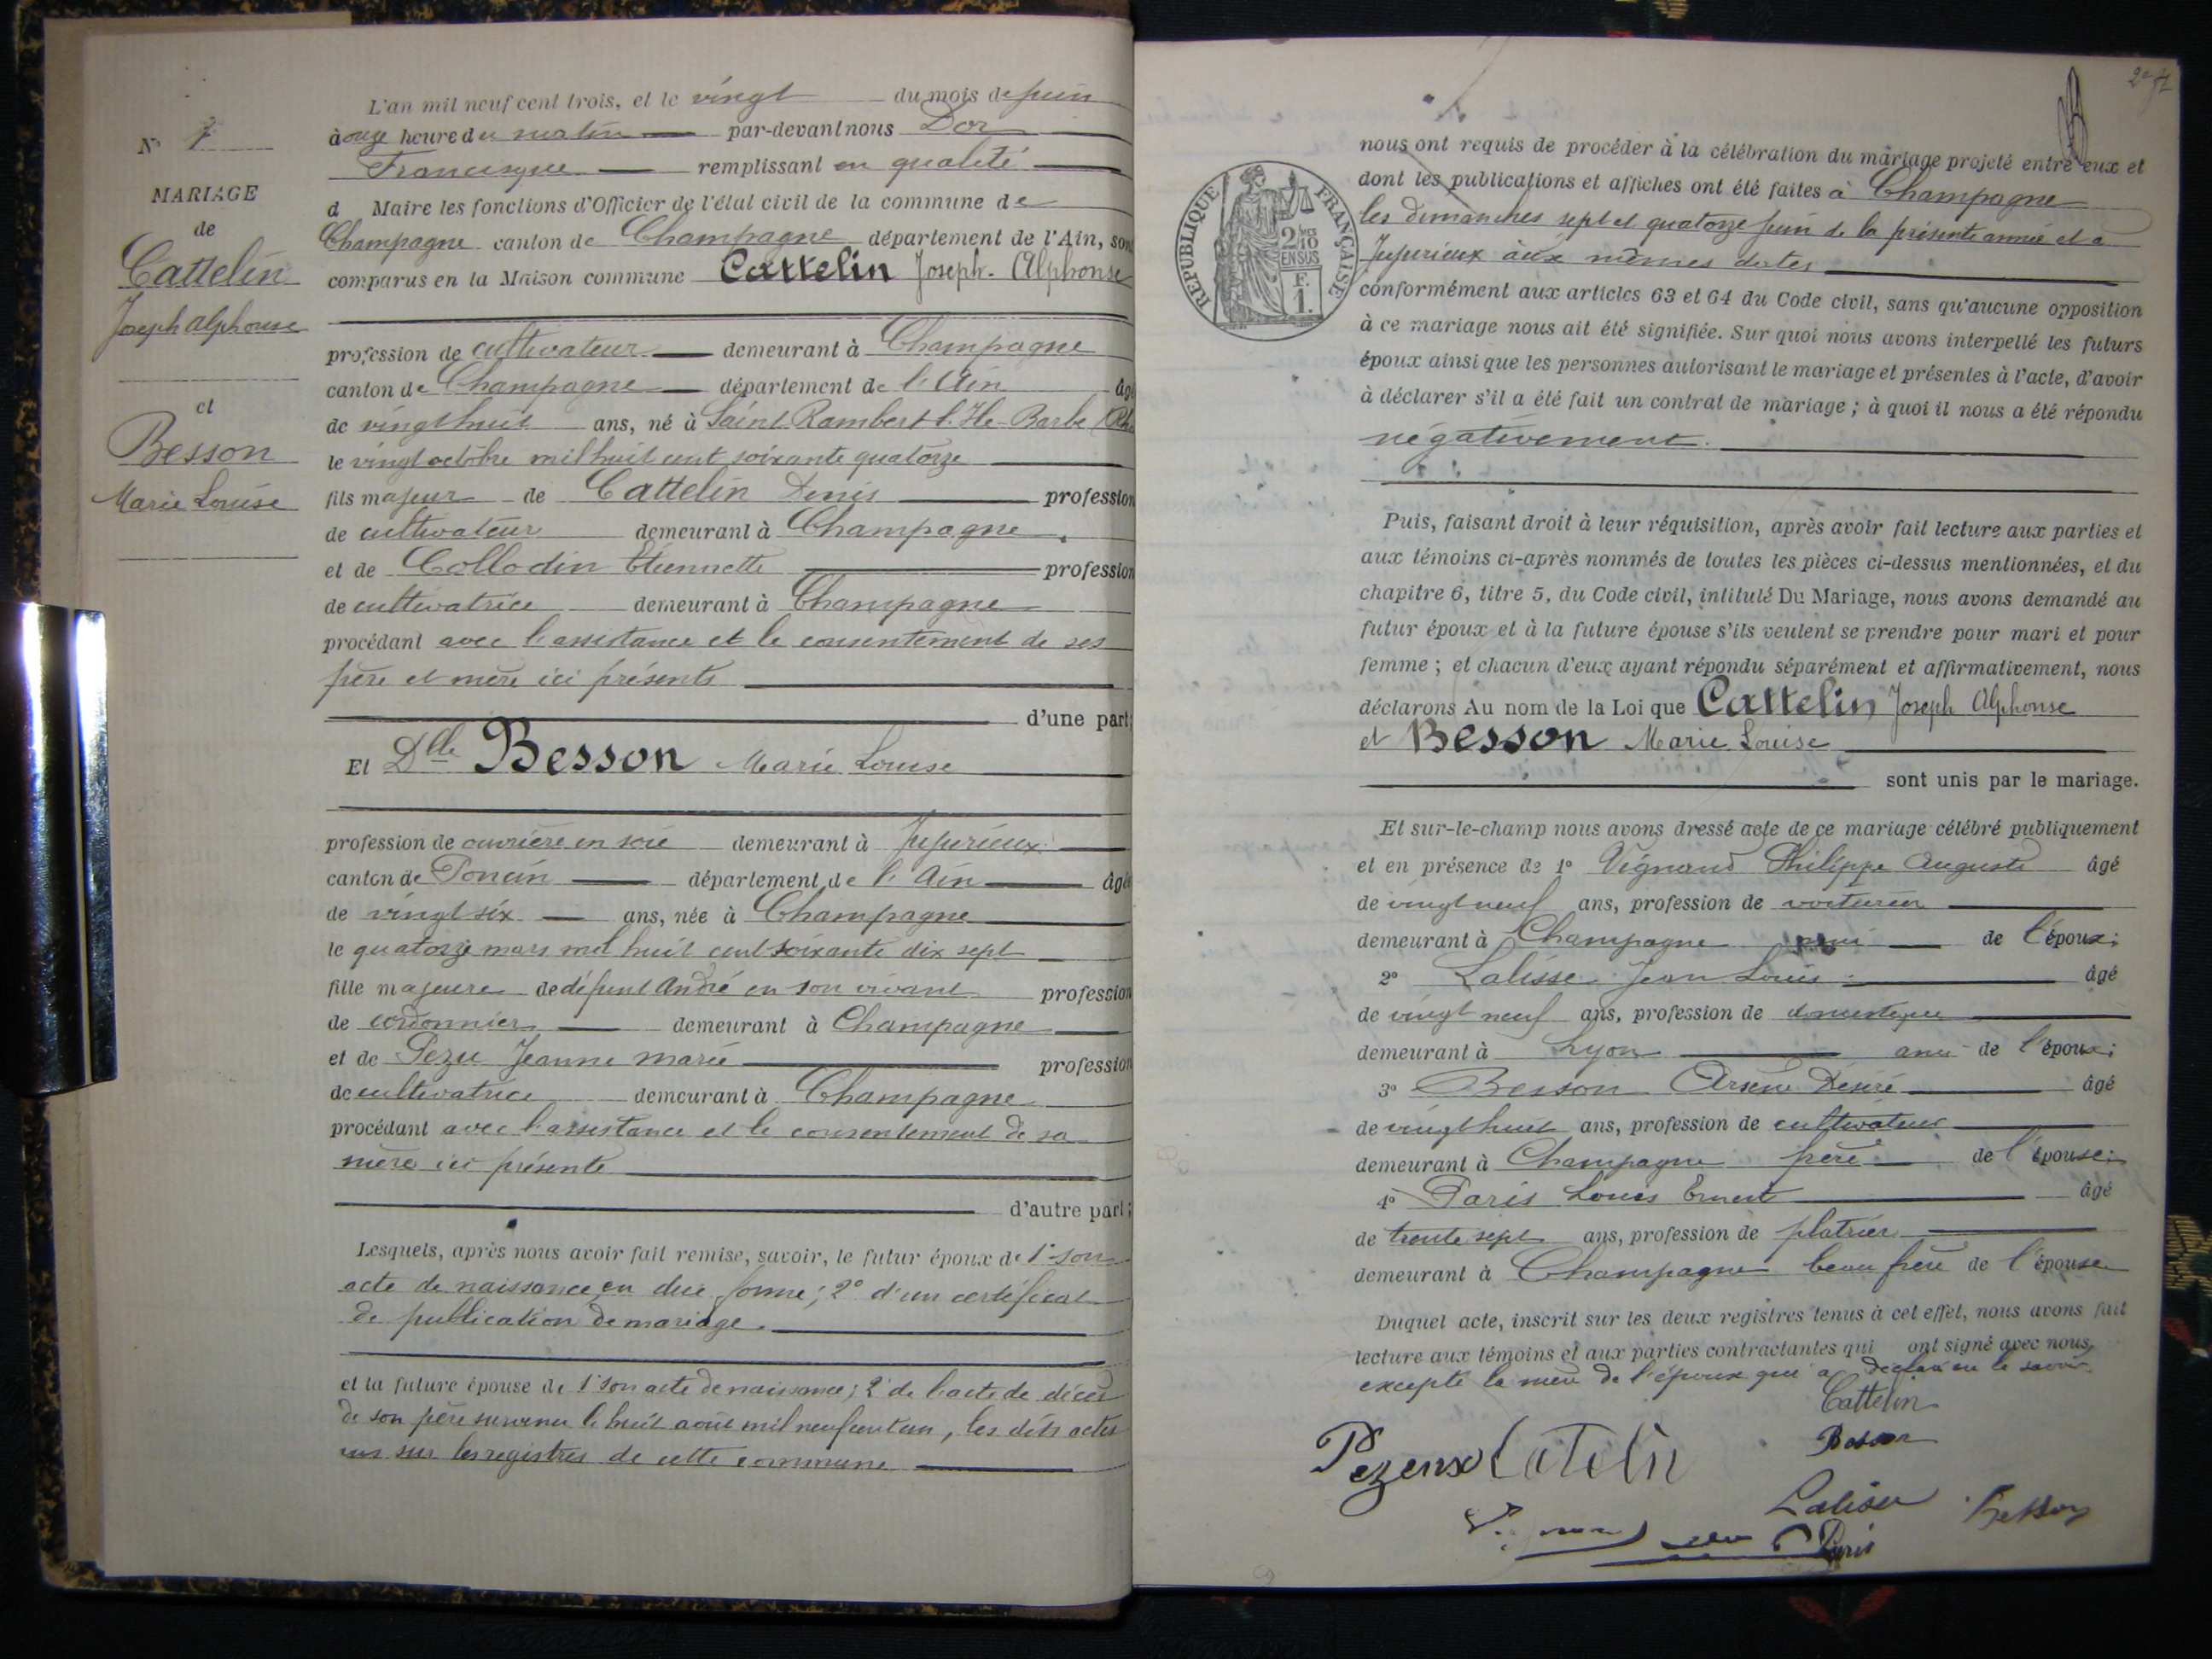 N° 7
MARIAGE
de
Cattelin
Joseph Alphonse
et
Besson
Marie Louise
L'an mil neuf cent trois, et le vingt du mois de juin
à onze heure du matin par-devant nous Dor
Francisque remplissant en qualité
d Maire les fonctions d'Officier de l'état civil de la commune de
Champagne canton de Champagne département de l'Ain, son
comparus en la Maison commune Cattelin Joseph. Alphonse
profession de cultivateur demeurant à Champagne
canton de Champagne département de l'Ain âgé
de vingt huit ans, né à Saint Rambert l. Ile-Barbe (Rh
le vingt octobre mil huit cent soixante quatorze
fils majeur de Cattelin Denis profession
de cultivateur demeurant à Champagne
et de Collodin Etiennette profession
de cultivatrice demeurant à Champagne
procédant avec l'assistance et le consentement de ses
père et mère ici présents
d'une part;
Et Dlle Besson Marie Louise
profession de ouvrière en soie demeurant à Jujurieux
canton de Poncin département de l'Ain âgée
de vingt six ans, née à Champagne
le quatorze mars mil huit cent soixante dix sept
fille majeure de défunt André en son vivant profession
de cordonnier demeurant à Champagne
et de Pezu Jeanne Marie profession
de cultivatrice demeurant à Champagne
procédant avec l'assistance et le consentement de sa
mère ici présente
d'autre part;
Lesquels, après nous avoir fait remise, savoir, le futur époux de 1° son
acte de naissance en due forme; 2° d'un certificat
de publication de mariage.
et la future épouse de 1° son acte de naissance; 2° de l'acte de décès
de son père survenu le huit août mil neuf cent un, les dits actes
sur les registres de cette commune
nous ont requis de procéder à la célébration du mariage projeté entre eux et
dont les publications et affiches ont été faites à Champagne
les dimanches sept et quatorze juin de la présente année et à
Jujurieux aux mêmes dates
REPUBLIQUE FRANÇAISE
2/10
EN SUS
F.
1.
conformément aux articles 63 et 64 du Code civil, sans qu'aucune opposition
à ce mariage nous ait été signifiée. Sur quoi nous avons interpellé les futurs
époux ainsi que les personnes autorisant le mariage et présentes à l'acte, d'avoir
à déclarer s'il a été fait un contrat de mariage ; à quoi il nous a été répondu
négativement.
Puis, faisant droit à leur réquisition, après avoir fait lecture aux parties et
aux témoins ci-après nommés de toutes les pièces ci-dessus mentionnées, et du
chapitre 6, titre 5, du Code civil, intitulé Du Mariage, nous avons demandé au
futur époux et à la future épouse s'ils veulent se prendre pour mari et pour
femme ; et chacun d'eux ayant répondu séparément et affirmativement, nous
déclarons Au nom de la Loi que Cattelin Joseph Alphonse
et Besson Marie Louise
sont unis par le mariage.
Et sur-le-champ nous avons dressé acte de ce mariage célébré publiquement
et en présence de 1° Vignand Philippe Auguste âgé
de vingt neuf ans, profession de voiturier
demeurant à Champagne ami de l'époux;
2° Lalisse Jean Louis âgé
de vingt neuf ans, profession de domestique
demeurant à Lyon ami de l'époux;
3° Besson Arsène Désiré âgé
de vingt huit ans, profession de cultivateur
demeurant à Champagne frère de l'épouse;
4° Paris Louis Ernest âgé
de trente sept ans, profession de platrier
demeurant à Champagne beau frère de l'épouse
Duquel acte, inscrit sur les deux registres tenus à cet effet, nous avons fait
lecture aux témoins et aux parties contractantes qui ont signé avec nous,
excepté la mère de l'époux qui a déclaré ne le savoir.
Cattelin
Besson
Catelin
Lalisse
Besson
Paris